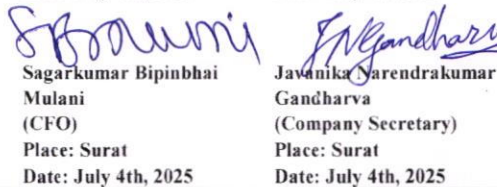 Sagarkumar Bipinbhai
Mulani
(CFO)
Place: Surat
Date: July 4th, 2025
Javanika Narendrakumar
Gandharva
(Company Secretary)
Place: Surat
Date: July 4th, 2025